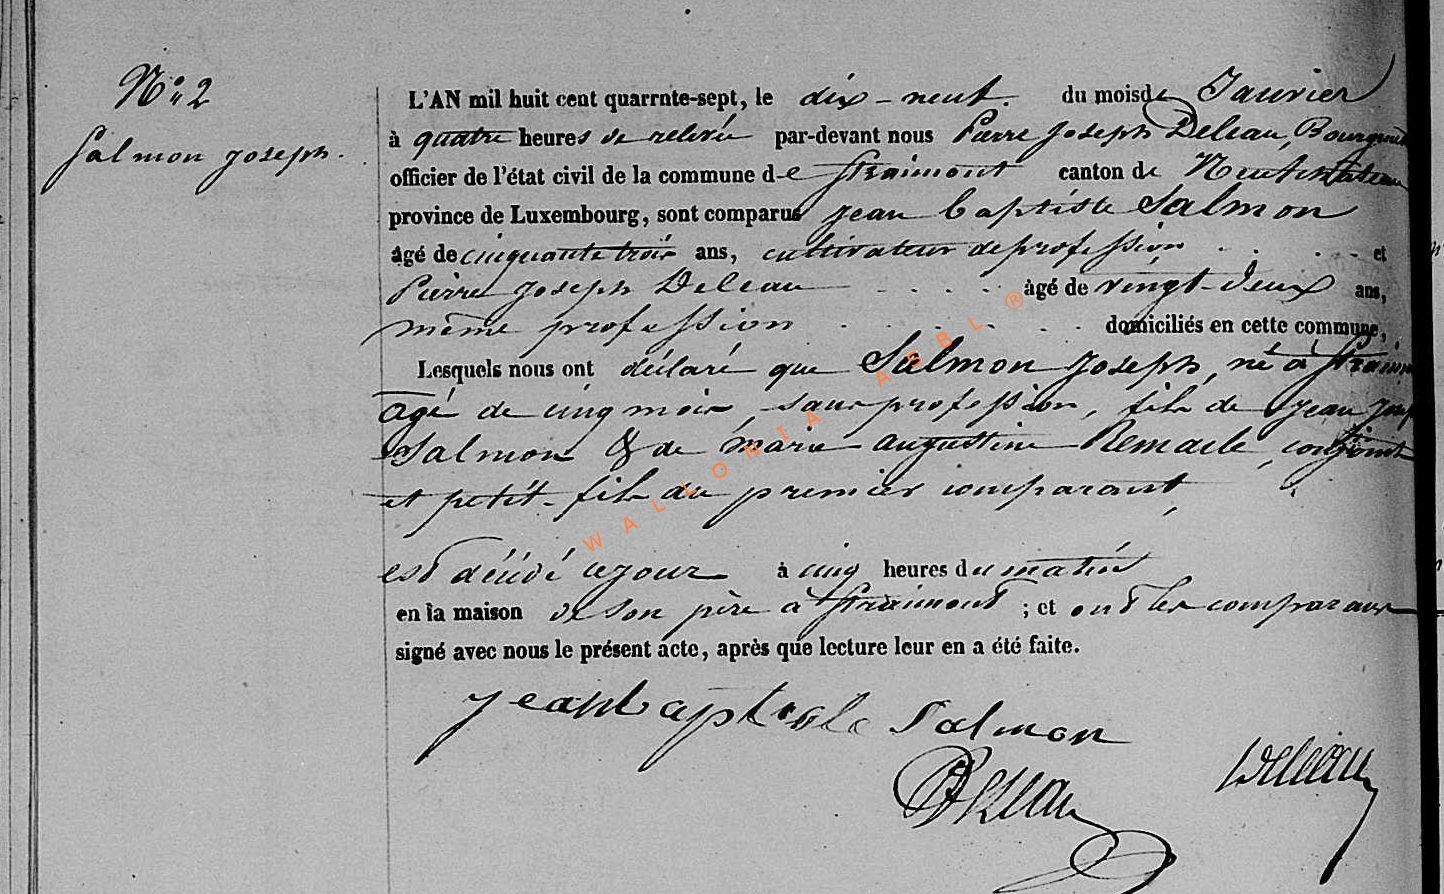 N° 2
Salmon Joseph.
L'AN mil huit cent quarrnte-sept, le dix-neuf. du mois de Janvier
à quatre heures de relevée par-devant nous Pierre Joseph Deleau, Bourgmestre
officier de l'état civil de la commune de Straimont canton de Neufchateau
province de Luxembourg, sont comparus Jean baptiste Salmon
âgé de cinquante trois ans, cultivateur de profession et
Pierre Joseph Deleau âgé de vingt-deux ans,
même profession domiciliés en cette commune,
Lesquels nous ont déclaré que Salmon Joseph, né à Straimont
agé de cinq mois, sans profession, fils de Jean Joseph
Salmon & de marie augustine Remacle, conjoints
et petit-fils du premier comparant,
est décédé ce jour à cinq heures du matin
en la maison de son père à Straimont ; et ont les comparans
signé avec nous le présent acte, après que lecture leur en a été faite.
Jean baptiste Salmon
Deleau
Deleau
WALLONIA ASBL ®